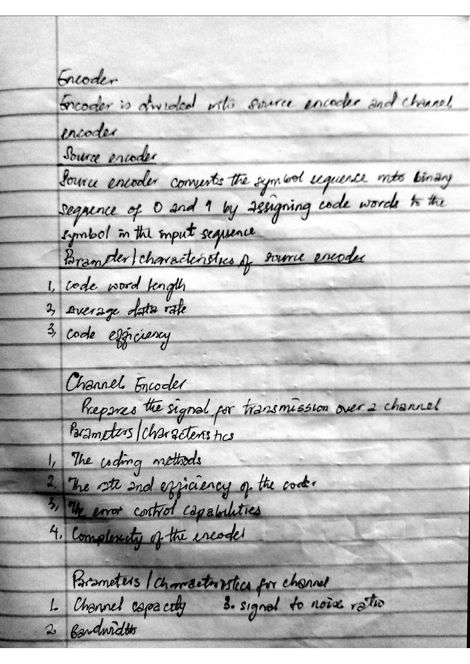 Encoder
Encoder is divided into source encoder and channel
encoder
Source encoder
Source encoder converts the symbol sequence into binary
sequence of 0 and 1 by assigning code words to the
symbol in the input sequence
Parameter/characteristics of source encoder
1, Code word length
2, Average data rate
3, Code efficiency
Channel Encoder
Prepares the signal for transmission over a channel
Parameters/characteristics
1, The coding methods
2. The rate and efficiency of the coder
3, The error control capabilities
4. Complexity of the encoder
Parameters/characteristics for channel
1. Channel capacity 3. signal to noise ratio
2. Bandwidth